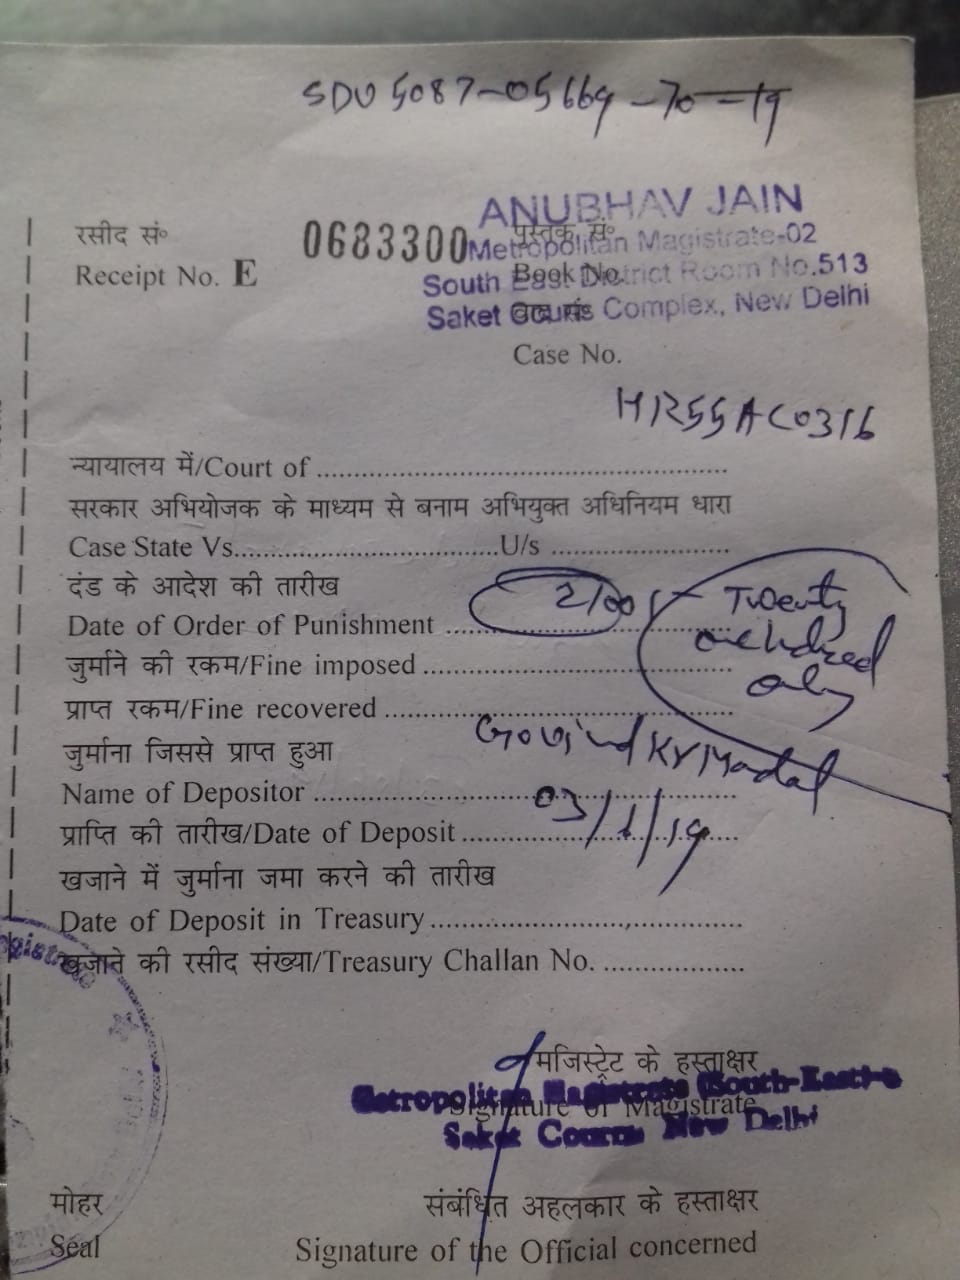 SDU 5087-05669-70-19
ANUBHAV JAIN
रसीद सं० 0683300 पुस्तक सं०
Metropolitan Magistrate-02
Receipt No. E Book No.
South East District Room No.513
Saket Courts Complex, New Delhi
Case No.
HR55AC0316
न्यायालय में/Court of
सरकार अभियोजक के माध्यम से बनाम अभियुक्त अधिनियम धारा
Case State Vs. U/s
दंड के आदेश की तारीख
Date of Order of Punishment 2100/- Twenty
one hdred
only
जुर्माने की रकम/Fine imposed
प्राप्त रकम/Fine recovered
जुर्माना जिससे प्राप्त हुआ
Name of Depositor Govind Kr Mandal
प्राप्ति की तारीख/Date of Deposit 03/1/19
खजाने में जुर्माना जमा करने की तारीख
Date of Deposit in Treasury
खजाने की रसीद संख्या/Treasury Challan No.
मजिस्ट्रेट के हस्ताक्षर
Metropolitan Magistrate (South-East)-
Signature of Magistrate
Saket Courts New Delhi
मोहर संबंधित अहलकार के हस्ताक्षर
Seal Signature of the Official concerned